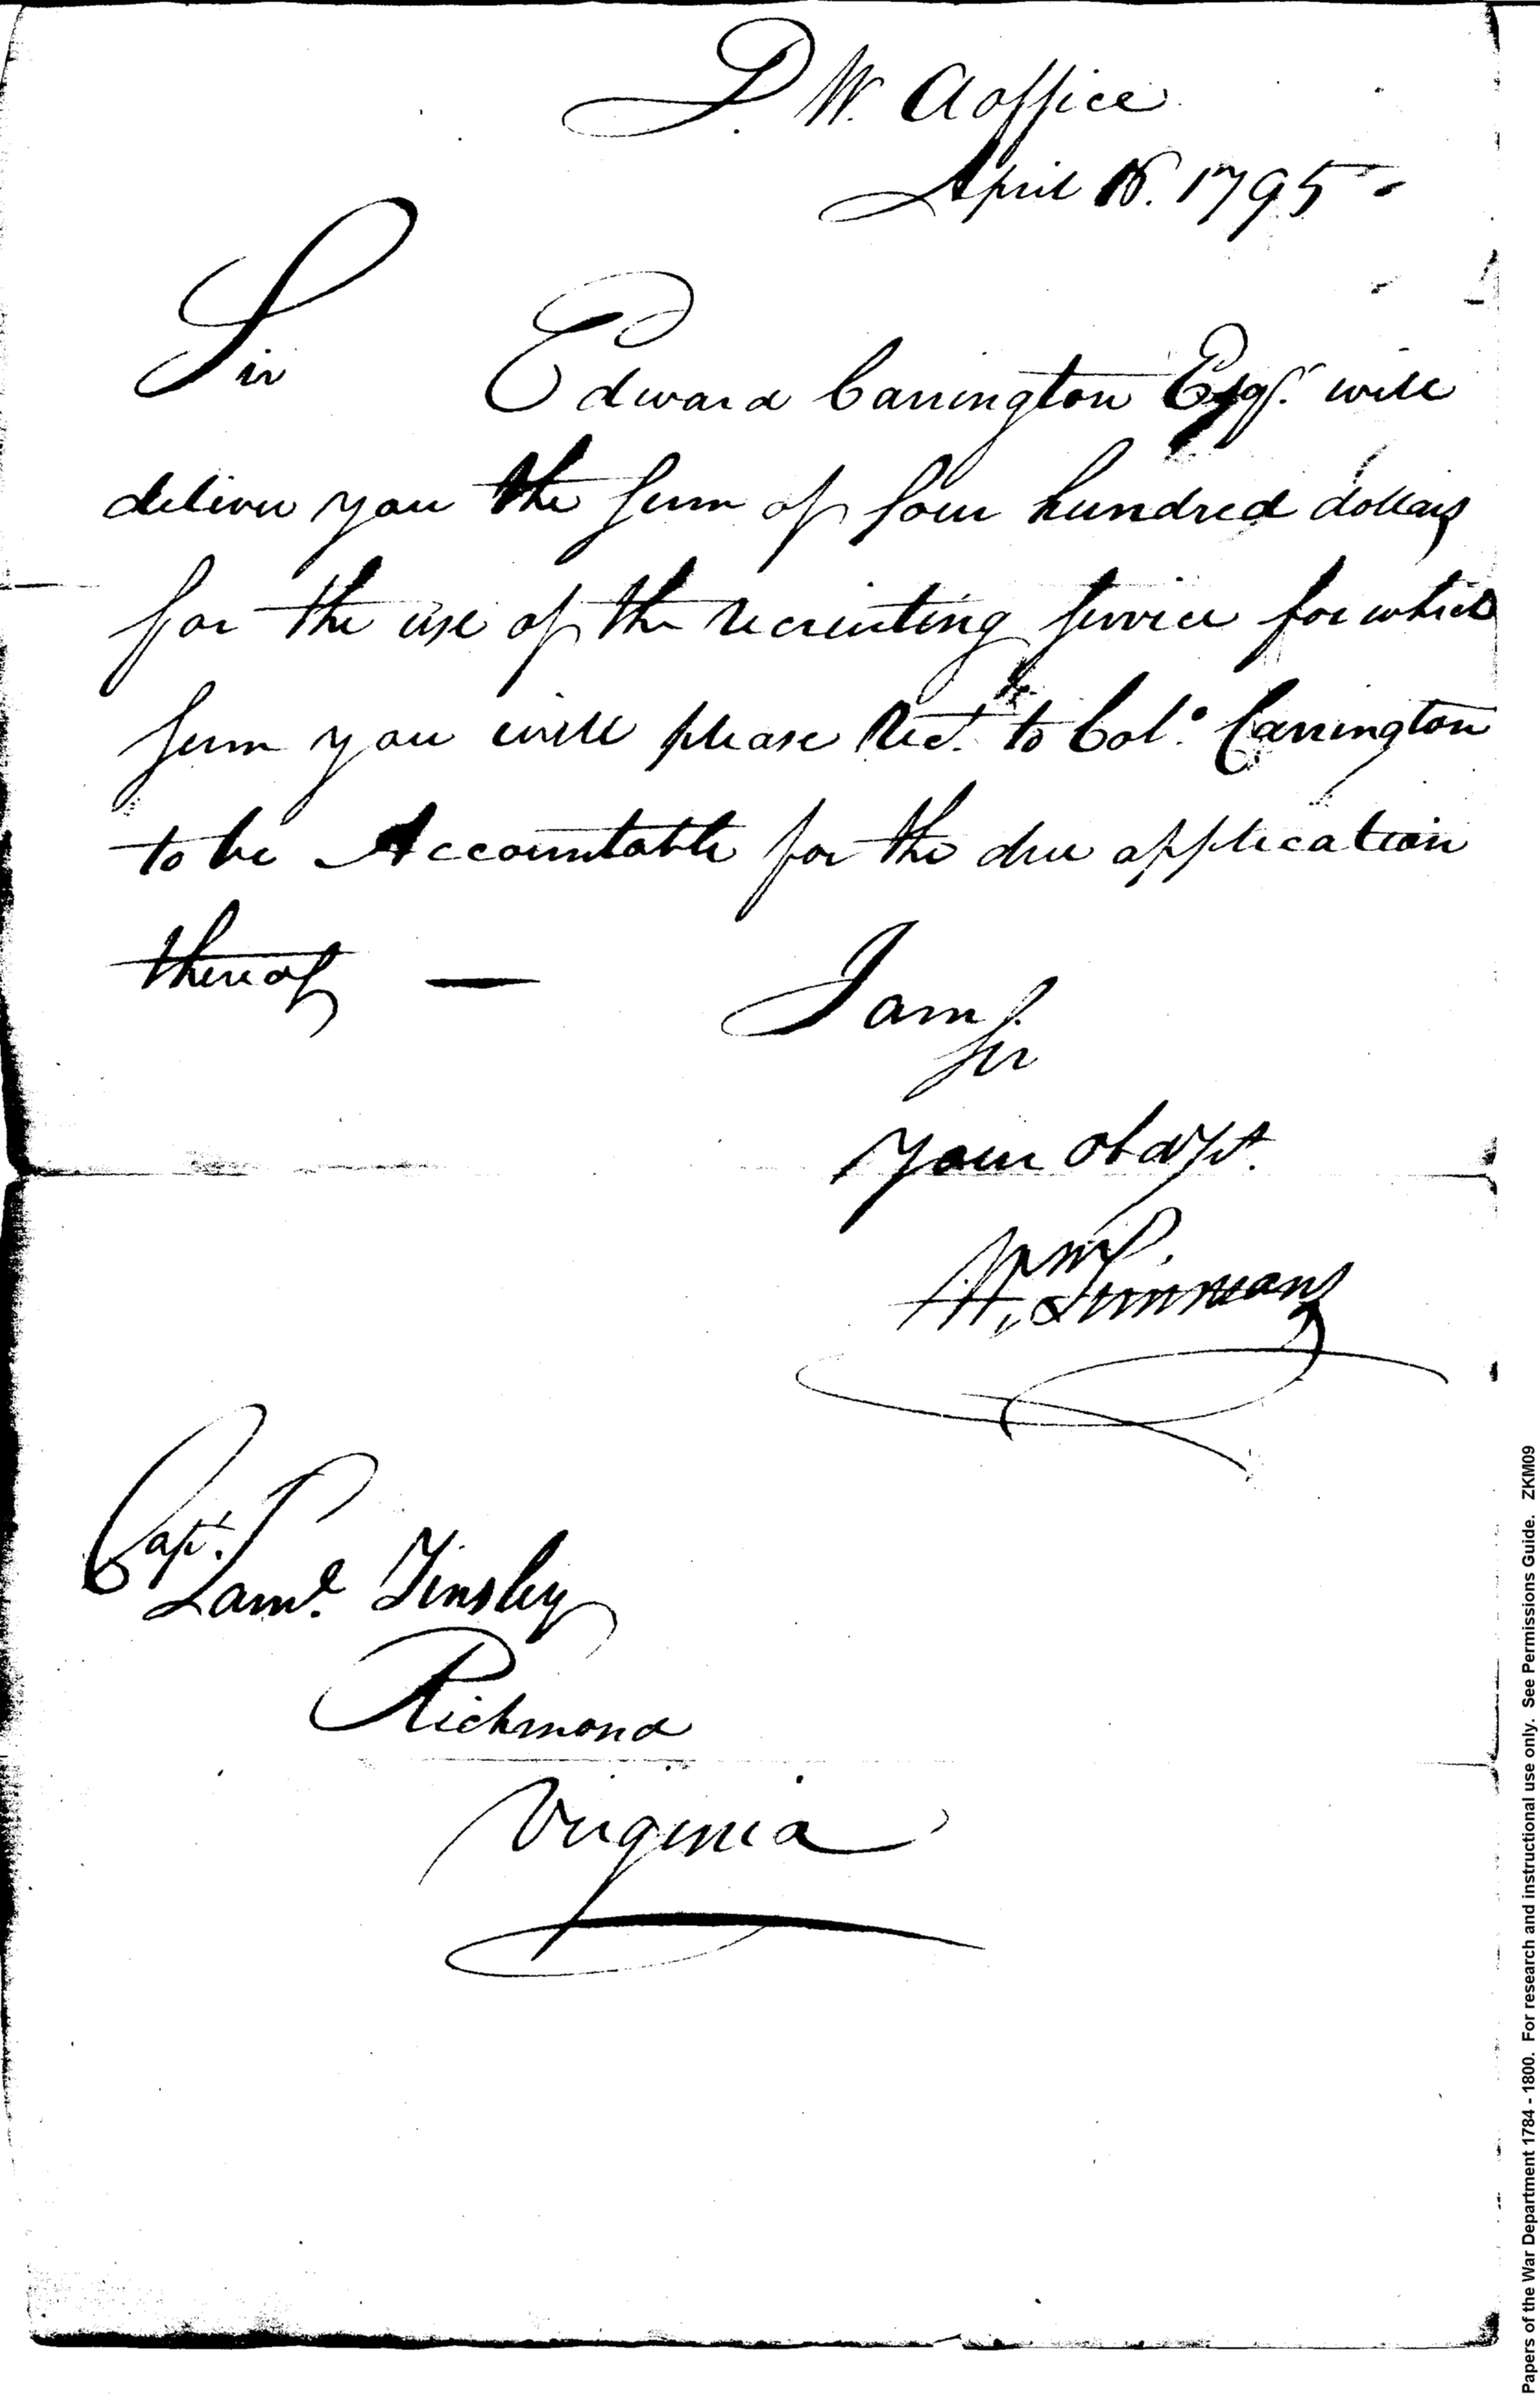 D. W. A office
April 18. 1795
Sir Edward Carrington Esqr. will
deliver you the sum of four hundred dollars
for the use of the recruiting service for which
sum you will please Rect. to Colo. Carrington
to be Accountable for the due application
thereof —
I am
Sir
Your obd
Wm. Simmons
Capt.
Saml. Tinsley
Richmond
Virginia
Papers of the War Department 1784 - 1800. For research and instructional use only. See Permissions Guide. ZKM09